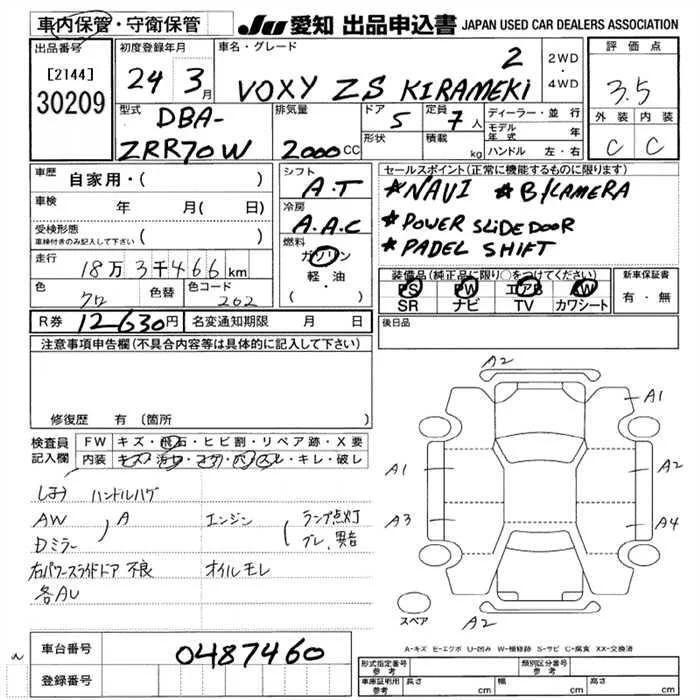 車内保管・守衛保管
JU 愛知 出品申込書 JAPAN USED CAR DEALERS ASSOCIATION
出品番号 初度登録年月 車名・グレード 評価点
[2144]
30209
24 3月
VOXY ZS KIRAMEKi 2
2WD
・
4WD
3.5
型式 DBA-
ZRR70W
排気量
2000cc
ドア 5
形状
定員 7人
積載 kg
ディーラー・並行
モデル年式 年
ハンドル 左・右
外装 内装
C C
車歴 自家用・( )
車検 年 月( 日)
受検形態
車検付きのみ記入して下さい ( )
走行 18万3千466km
色 クロ 色替 色コード 202
シフト
A.T
冷房
A.A.C
燃料
ガソリン
軽・油
( ・ )
セールスポイント(正常に機能するものに限ります)
*NAVI *B/CAMERA
*POWER SLIDE DOOR
*PADEL SHIFT
装備品(純正品に限り○をつけてください)
PS PW エアB AW
SR ナビ TV カワシート
新車保証書
有・無
R券 12630円 名変通知期限 月 日
後日品
注意事項申告欄(不具合内容等は具体的に記入して下さい)
修復歴 有 (箇所 )
検査員
記入欄
FW キズ・飛石・ヒビ割・リペア跡・X要
内装 キズ・汚れ・コゲ・穴・スレ・キレ・破レ
ハンドルハゲ
AW
Dミラー
A
エンジン
ランプ点灯
ブレ、異音
右パワースライドドア 不良 オイルモレ
各AU
A2
A1
A1
A2
A3
A4
A2
スペア
A-キズ E-エクボ U-凹み W-補修跡 S-サビ C-腐食 XX-交換済
車台番号 0487460
登録番号
型式指定番号
参考
類別区分番号
参考
車庫証明用
参考
長さ cm 幅 cm 高さ cm